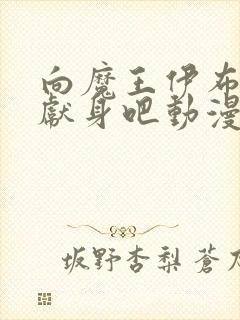 向魔王伊布
獻身吧動漫
坂野杏梨 蒼乃